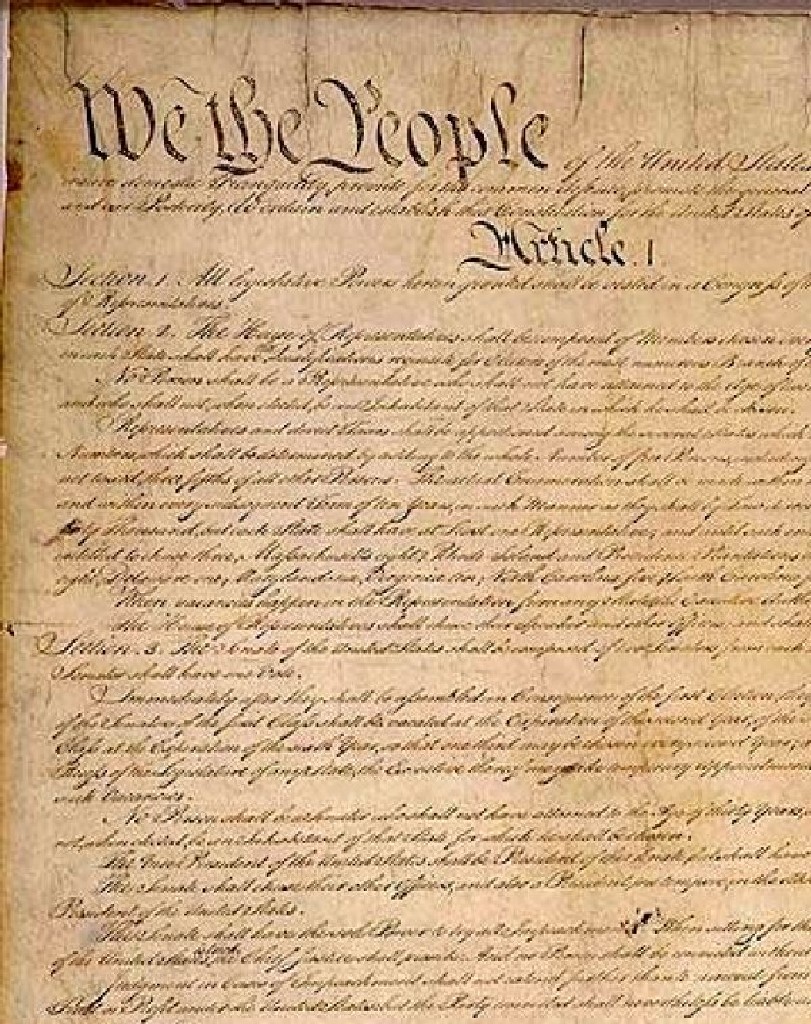 We the People of the United States
insure domestic Tranquility, provide for the common defence, promote the general
and our Posterity, do ordain and establish this Constitution for the United States of
Article. I.
Section. 1. All legislative Powers herein granted shall be vested in a Congress of
of Representatives.
Section. 2. The House of Representatives shall be composed of Members chosen every
in each State shall have Qualifications requisite for Electors of the most numerous Branch of
No Person shall be a Representative who shall not have attained to the Age of twenty
and who shall not, when elected, be an Inhabitant of that State in which he shall be chosen.
Representatives and direct Taxes shall be apportioned among the several States which
Numbers, which shall be determined by adding to the whole Number of free Persons, including
not taxed, three fifths of all other Persons. The actual Enumeration shall be made within
and within every subsequent Term of ten Years, in such Manner as they shall by Law
thirty Thousand, but each State shall have at Least one Representative; and until such
entitled to chuse three, Massachusetts eight, Rhode Island and Providence Plantations
eight, Delaware one, Maryland six, Virginia ten, North Carolina five, South Carolina
When vacancies happen in the Representation from any State, the Executive
The House of Representatives shall chuse their Speaker and other Officers; and shall
Section. 3. The Senate of the United States shall be composed of two Senators from each
Senator shall have one Vote.
Immediately after they shall be assembled in Consequence of the first Election, they
of the Senators of the first Class shall be vacated at the Expiration of the second Year, of the
Class at the Expiration of the sixth Year, so that one third may be chosen every second Year;
Recess of the Legislature of any State, the Executive thereof may make temporary Appointments
such Vacancies.
No Person shall be a Senator who shall not have attained to the Age of thirty Years,
not, when elected, be an Inhabitant of that State for which he shall be chosen.
The Vice President of the United States shall be President of the Senate, but shall have
The Senate shall chuse their other Officers, and also a President pro tempore, in the
President of the United States.
The Senate shall have the sole Power to try all Impeachments. When sitting for that
of the United States, the Chief Justice shall preside: And no Person shall be convicted without
Judgment in Cases of Impeachment shall not extend further than to removal from
Trust or Profit under the United States: but the Party convicted shall nevertheless be liable